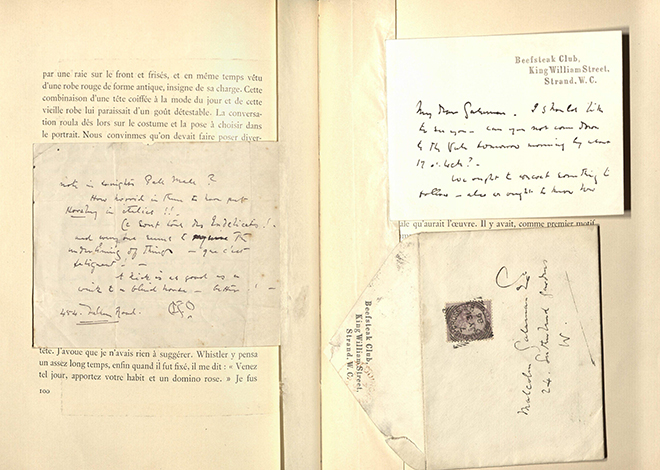 par une raie sur le front et frisés, et en même temps vêtu
d'une robe rouge de forme antique, insigne de sa charge. Cette
combinaison d'une tête coiffée à la mode du jour et de cette
vieille robe lui paraissait d'un goût détestable. La conversa-
tion roula dès lors sur le costume et la pose à choisir dans
le portrait. Nous convinmes qu'on devait faire poser diver-
Pall Mall ?
How horrid in them to have put
in italics !!.
and every one seems to the
underlining of things – que c'est
fatiguant – –
A kick is as good as a
wink to a blind horse – better ! –
454. Fulham Road.
tête. J'avoue que je n'avais rien à suggérer. Whistler y pensa
un assez long temps, enfin quand il fut fixé, il me dit : « Venez
tel jour, apportez votre habit et un domino rose. » Je fus
100
Beefsteak Club,
King William Street,
Strand, W. C.
My Dear Salaman. I should like
to see you – can you not come down
to the Vale tomorrow morning by about
12 o'clock ? –
We ought to concoct something to
follow – also we ought to know how
ale qu'aurait l'œuvre. Il y avait, comme premier motif
Beefsteak Club,
King William Street,
Strand, W. C.
Malcolm Salaman Esq
24. Sutherland Gardens
W.